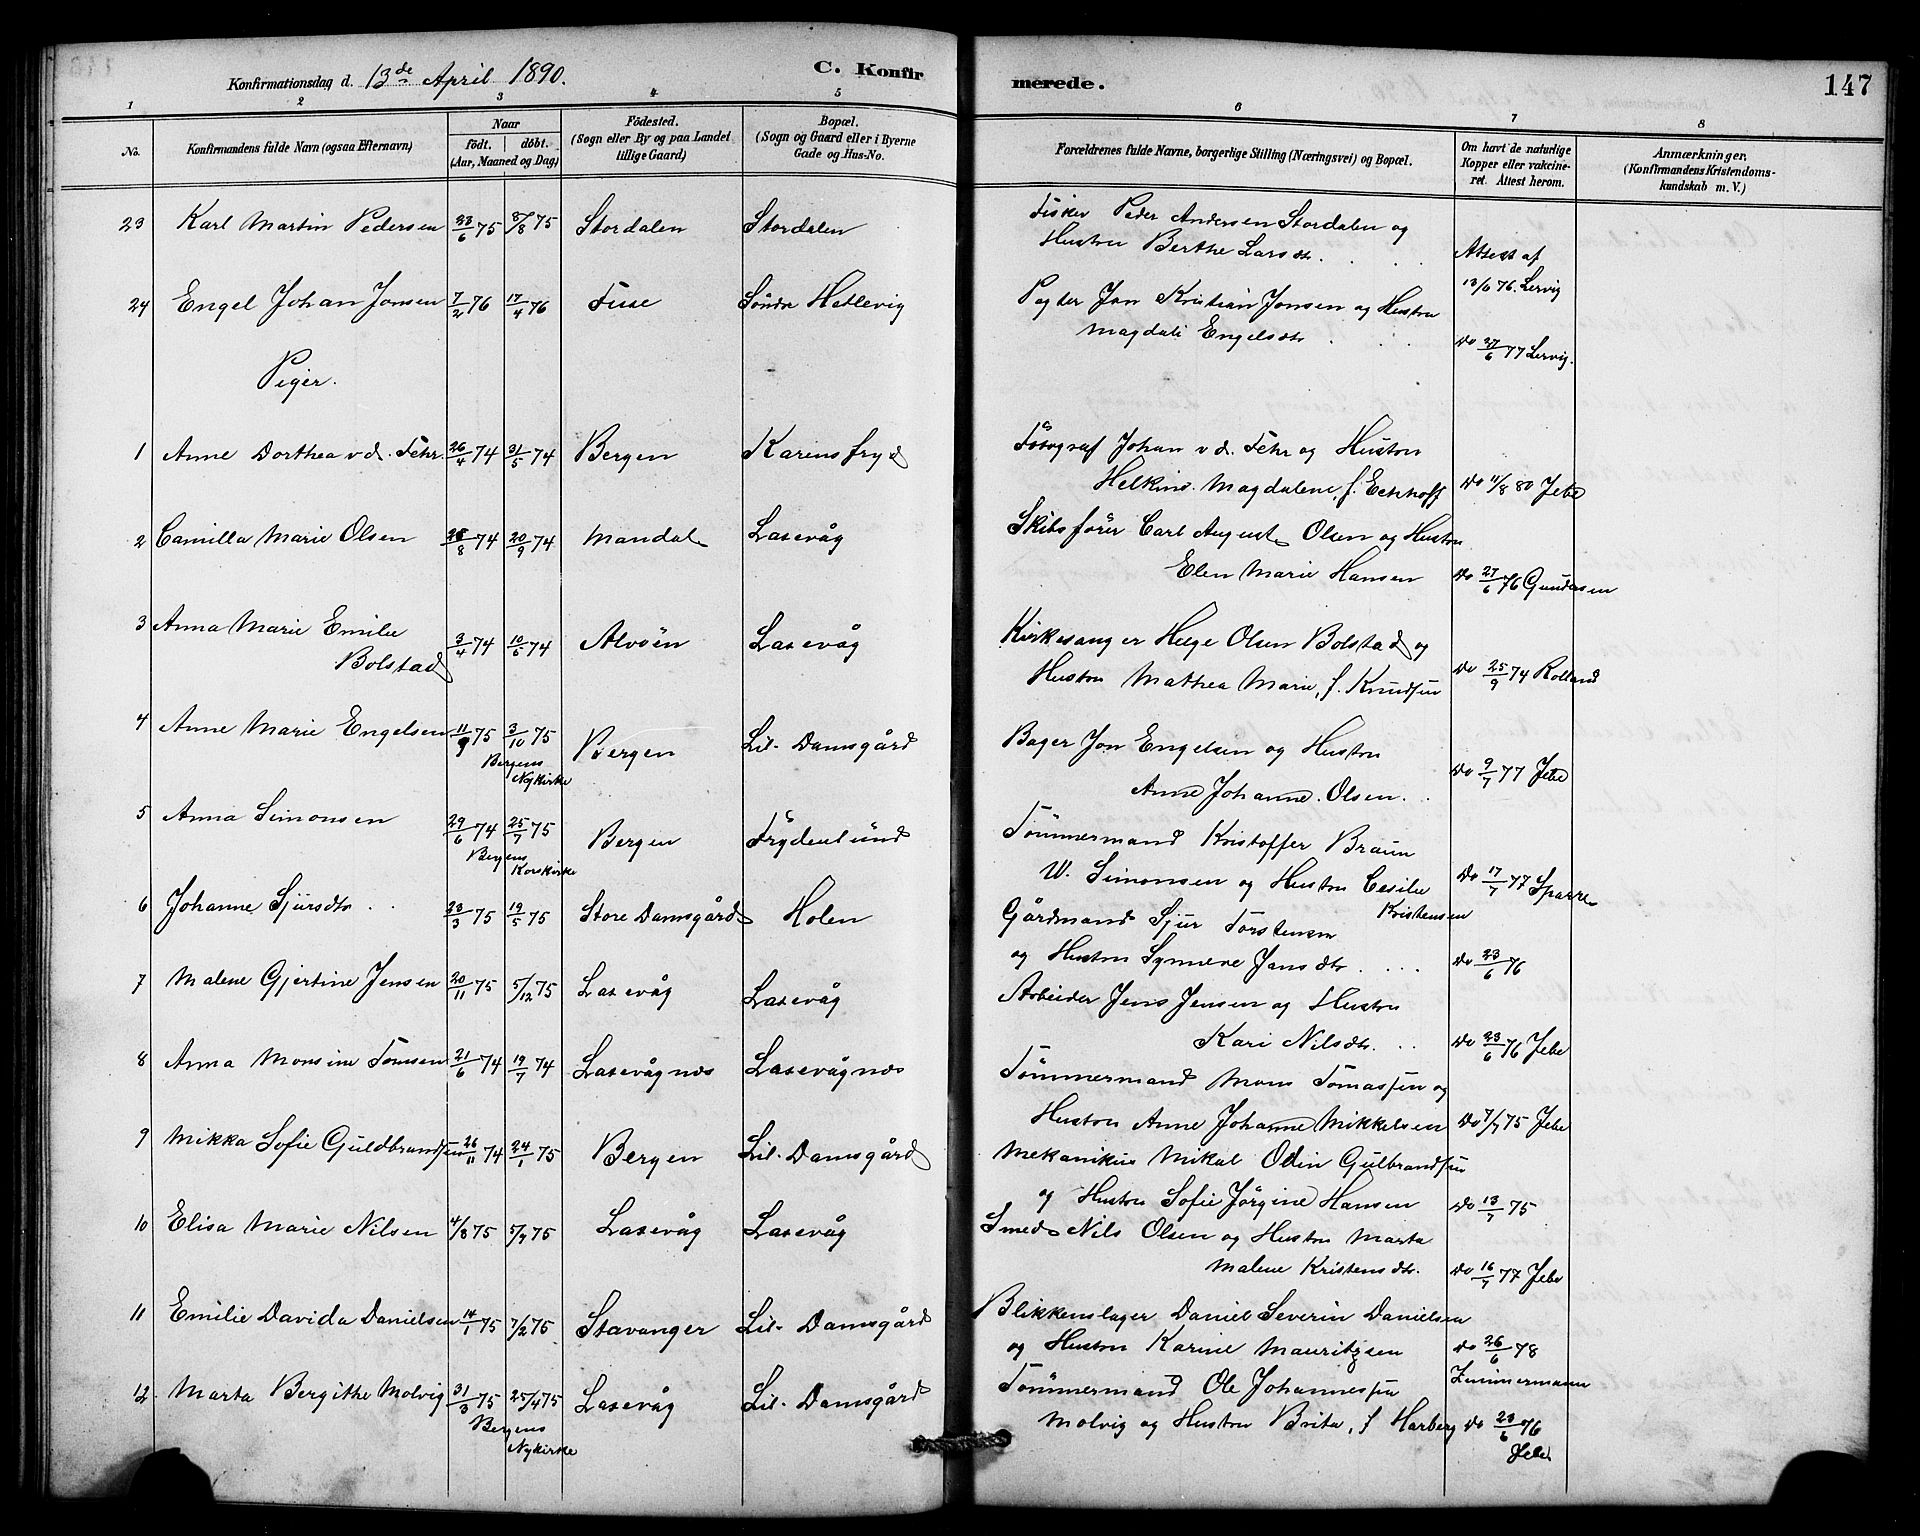 Konfirmationsdag d. 13de April 1890.
C. Konfir
merede.
147
1 2 3 4 5 6 7 8
No.
Konfirmandens fulde Navn (ogsaa Efternavn)
Naar
födt. döbt.
(Aar, Maaned og Dag)
Födested.
(Sogn eller By og paa Landet
tillige Gaard)
Bopæl.
(Sogn og Gaard eller i Byerne
Gade og Hus-No.
Forældrenes fulde Navne, borgerlige Stilling (Næringsvei) og Bopæl.
Om havt de naturlige
Kopper eller vakcine-
ret. Attest herom.
Anmærkninger.
(Konfirmandens Kristendoms-
kundskab m. V.)
23 Karl Martin Pedersen 23/6 75 8/8 75 Stordalen Stordalen Fisker Peder Andersen Stordalen og
Hustru Berthe Larsdtr. Attest af
13/6 76. Lervig
24 Engel Johan Jonsen 7/2 76 17/4 76 Fuse Söndre Hetlevig Pagter Jon Kristian Jonsen og Hustru
Magdali Engelsdtr Do 27/6 77 Lervig.
Piger.
1 Anne Dorthea v.d. Fehr. 26/4 74 31/5 74 Bergen Karensfryd Fotograf Johan v.d. Fehr og Hustru
Magdalene, f. Eckhoff Do 11/8 80 Jebe
2 Camilla Marie Olsen 8 74 20/9 74 Mandal Laxevåg Skibsförer Carl August Olsen og Hustru
Elen Marie Hansen Do 27/6 76 Gundersen
3 Anna Marie Emilie
Bolstad 3/4 74 10/5 74 Alvöen Laxevåg Kirkesanger Helge Olsen Bolstad og
Hustru Mathea Marie, f. Knudsen Do 25/9 74 Rolland
4 Anne Marie Engelsen 11/9 75 3/10 75 Bergen Lil. Damsgård Bager Jon Engelsen og Hustru
Bergens
Nykirke
Anne Johanne Olsen. Do 9/7 77 Jebe
5 Anna Simonsen 29/6 74 25/7 75 Bergen Frydenlund Tömmermand Kristoffer Braun
Bergens
Korskirke
W. Simonsen og Hustru Cesilie
Kristensen Do 17/7 77 Sparre
6 Johanne Sjursdtr 23/3 75 19/5 75 Store Damsgård Holen Gårdmand Sjur Torstensen
og Hustru Synneve Jansdtr. Do 23/6 76
7 Malene Gjertine Jensen 20/11 75 5/12 75 Laxevåg Laxevåg Arbeider Jens Jensen og Hustru
Kari Nilsdtr. Do 23/6 76 Jebe
8 Anna Monsine Tomsen 21/6 74 19/7 74 Laxevågnæs Laxevågnæs Tömmermand Mons Tomassen og
Hustru Anne Johanne Mikkelsen Do 7/7 75 Jebe
9 Mikka Sofie Guldbrandsen 26/11 74 24/1 75 Bergen Lil. Damsgård Mekanikus Mikal Odin Gulbrandsen
og Hustru Sofie Jörgine Hansen Do 13/7 75
10 Elisa Marie Nilsen 4/3 75 5/7 75 Laxevåg Laxevåg Smed Nils Olsen og Hustru Marta
Malene Kristensdtr. Do 16/7 77 Jebe
11 Emilie Davida Danielsen 14/1 75 7/2 75. Stavanger Lil. Damsgård Blikkenslager Daniel Severin Danielsen
og Hustru Karine Mauritzsen Do 26/6 78
Zimmermann
12 Marta Bergithe Molvig 31/3 75 25/4 75 Laxevåg Lil. Damsgård Tömmermand Ole Johannessen
Bergens
Nykirke
Molvig og Hustru Brita, f Harberg Do 23/6 76
Jebe